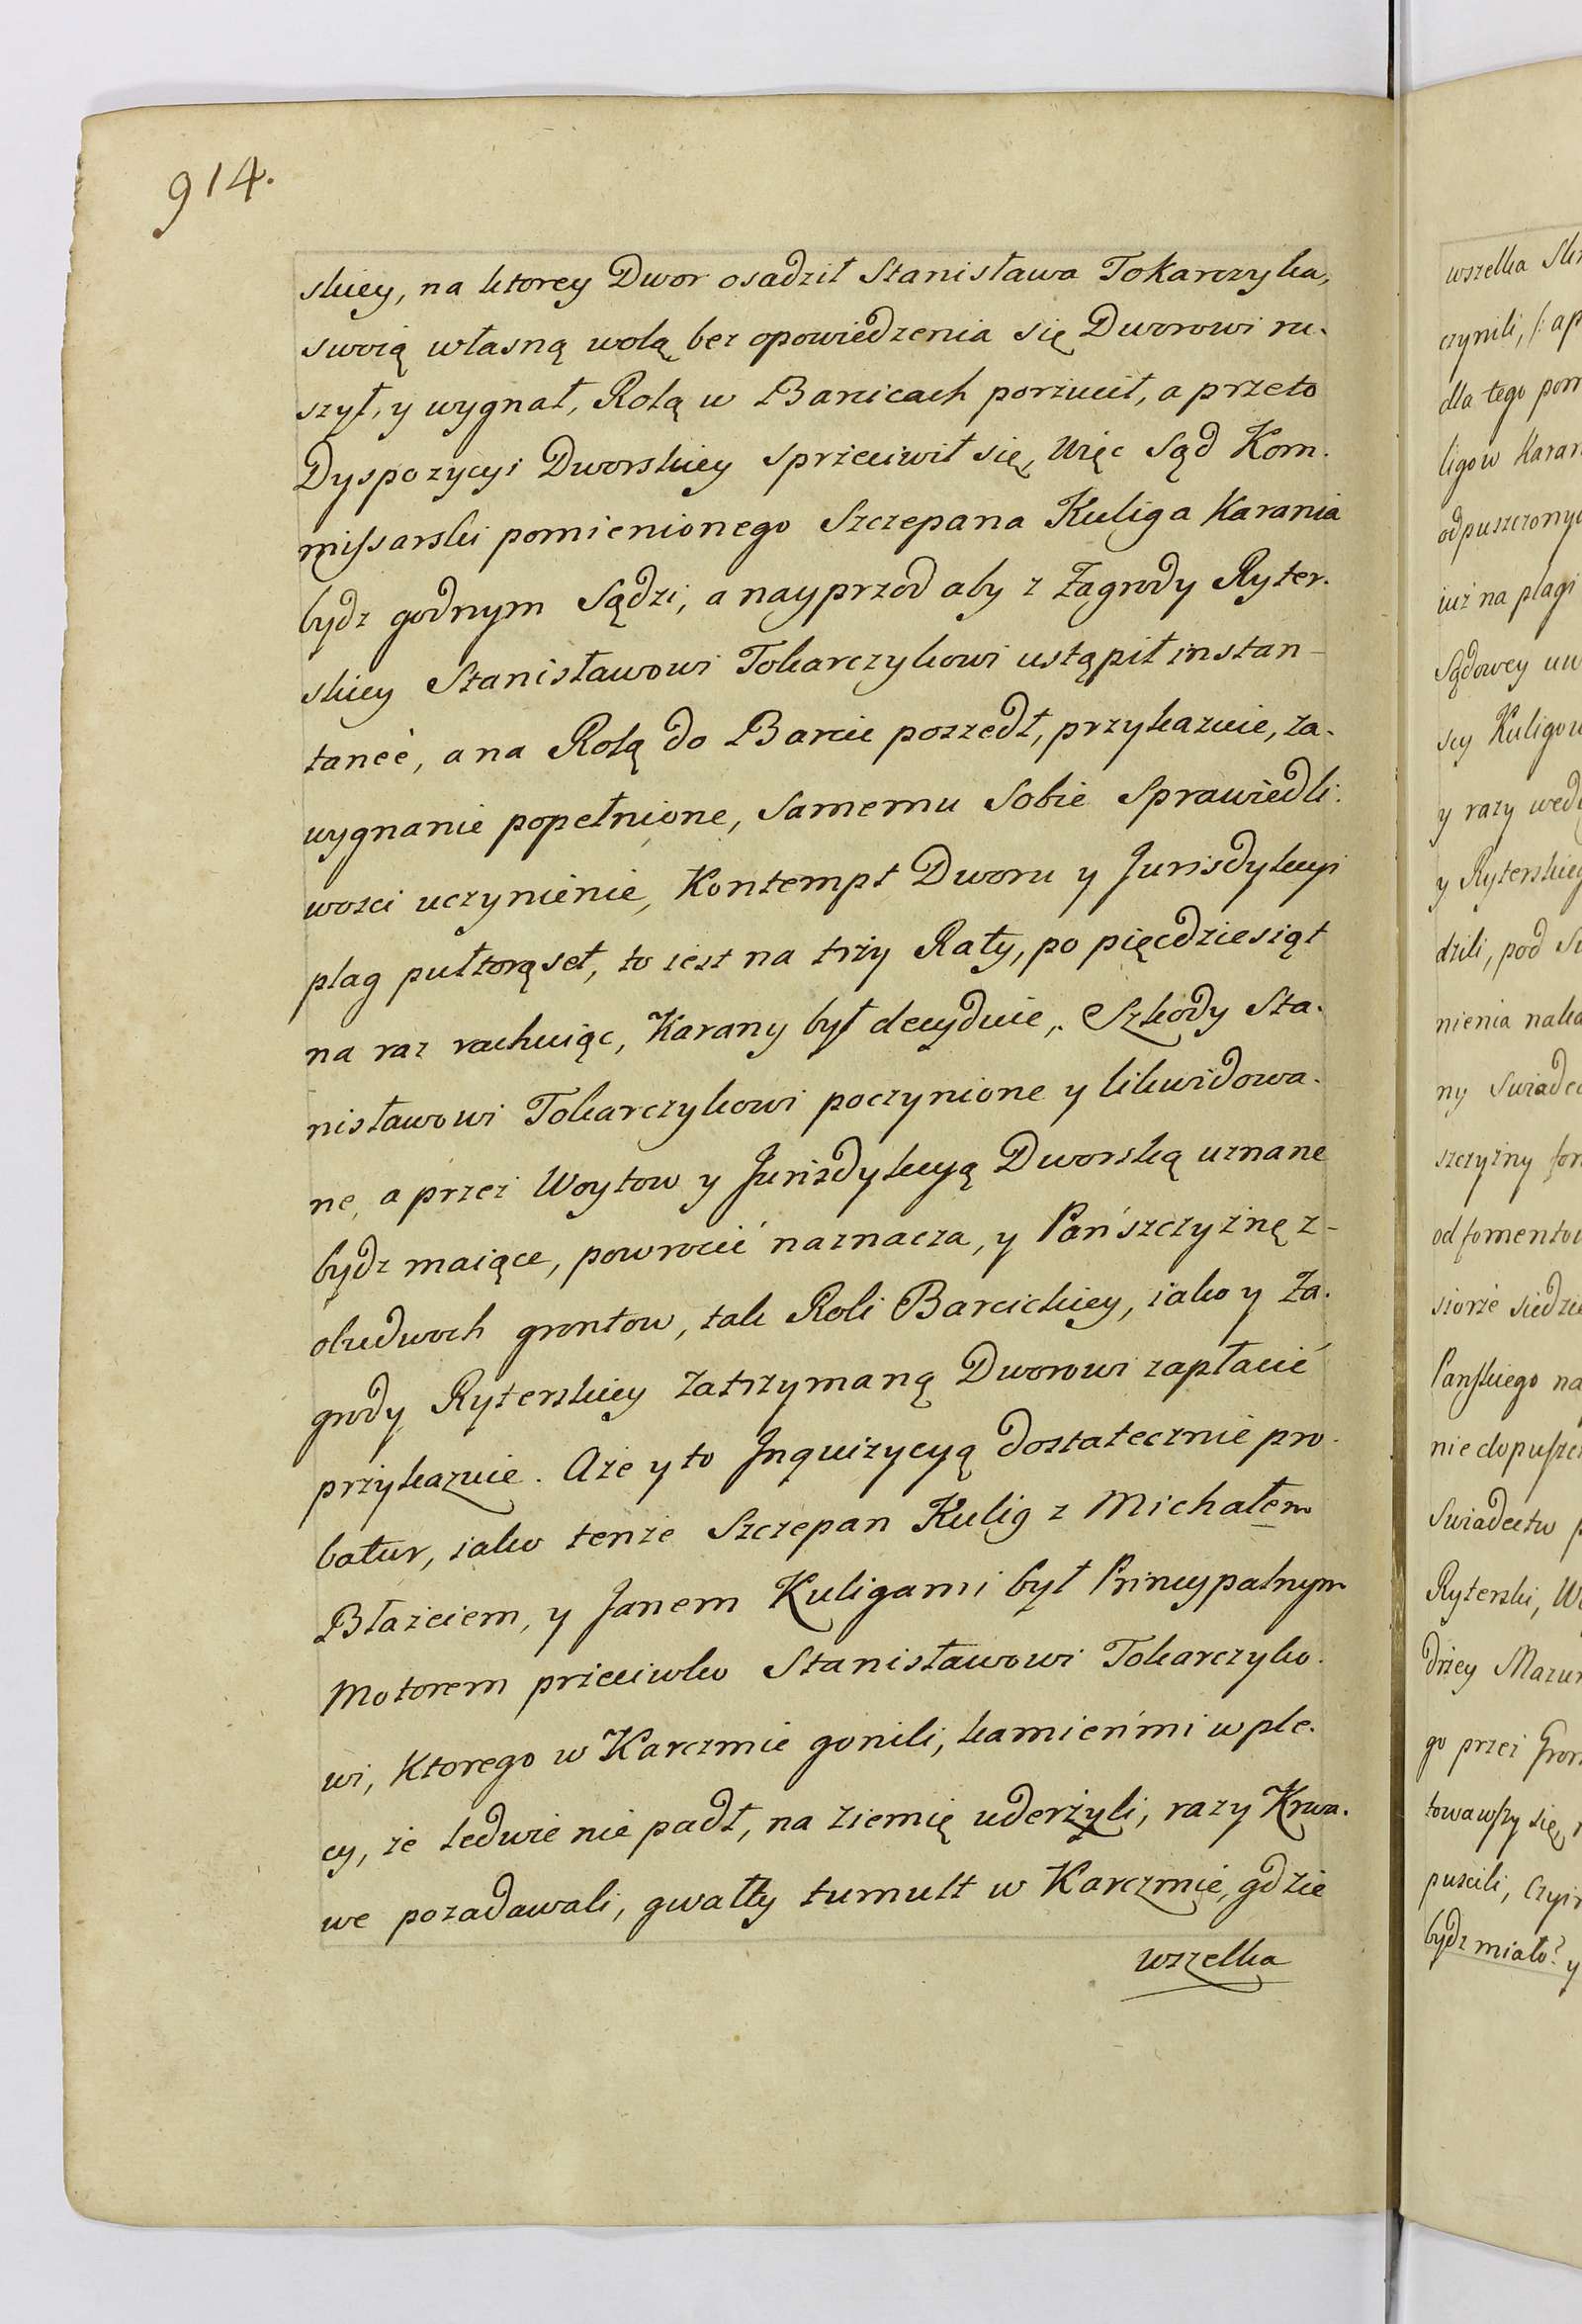 914.
skiey, na ktorey Dwor osadził Stanisława Tokarczyka,
swoią własną wolą bez opowiedzenia się Dworowi ru-
szył, y wygnał, Rolą w Barcicach porzucił, a przeto
Dyspozycyi Dworskiey sprzeciwił się, Więc Sąd Kom-
missarski pomienionego Szczepana Kuliga Karania
bydz godnym Sądzi, a nayprzod aby z Zagrody Ryter-
skiey Stanisławowi Tokarczykowi ustąpił instan-
taneè, a na Rolą do Barcic poszedł, przykazuie, za-
wygnanie popełnione, samemu sobie Sprawiedli-
wosci uczynienie, Kontempt Dworu y Jurisdykcyi
plag pułtorąset, to iest na trzy Raty, po pięcdziesiąt
na raz rachuiąc, Karany był decyduie, Szkody Sta-
nisławowi Tokarczykowi poczynione y likwidowa-
ne, a przez Woytow y Jurizdykcyą Dworską uznane
bydz maiące, powrocić naznacza, y Pańszczyznę z-
obudwoch grontow, tak Roli Barcickiey, iako y Za-
grody Ryterskiey zatrzymaną Dworowi zapłacić
przykazuie. Aże y to Inquizycyą dostatecznie pro-
batur, iako tenże Szczepan Kulig z Michałem
Błażeiem, y Janem Kuligami był Princypalnym
Motorem przeciwko Stanisławowi Tokarczyko-
wi, Ktorego w Karczmie gonili, kamieńmi w ple-
cy, że ledwie nie padł, na ziemię uderżyli, razy Krwa-
we pozadawali, gwałty tumult w Karczmie, gdzie
wszelka
wszelka
czynili, /: a
dla tego
ligow Karan
odpuszczony
iuż na plagi
Sądowey
Kuligow
y razy
y Ryterskieg
dzili, pod
nienia
ny Swiadec
szczyzny
od fomento
siorze
Panskiego na
nie dopuszcz
Swiadectw
Ryterski,
drzey Mazur
go przez Gron
towawszy się,
puscili, Czyi
bydz miało? y